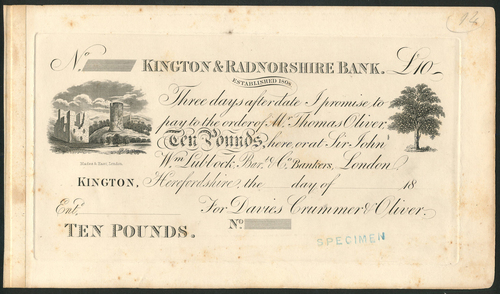 No. KINGTON & RADNORSHIRE BANK. £10
ESTABLISHED 1808
Three days after date I promise to
pay to the order of Mr. Thomas Oliver,
Ten Pounds, here, or at Sir John
Wm. Lubbock, Bart. & Co. Bankers, London.
KINGTON, Herefordshire, the day of 18
Entd. For Davies Crummer & Oliver.
TEN POUNDS. No.
SPECIMEN